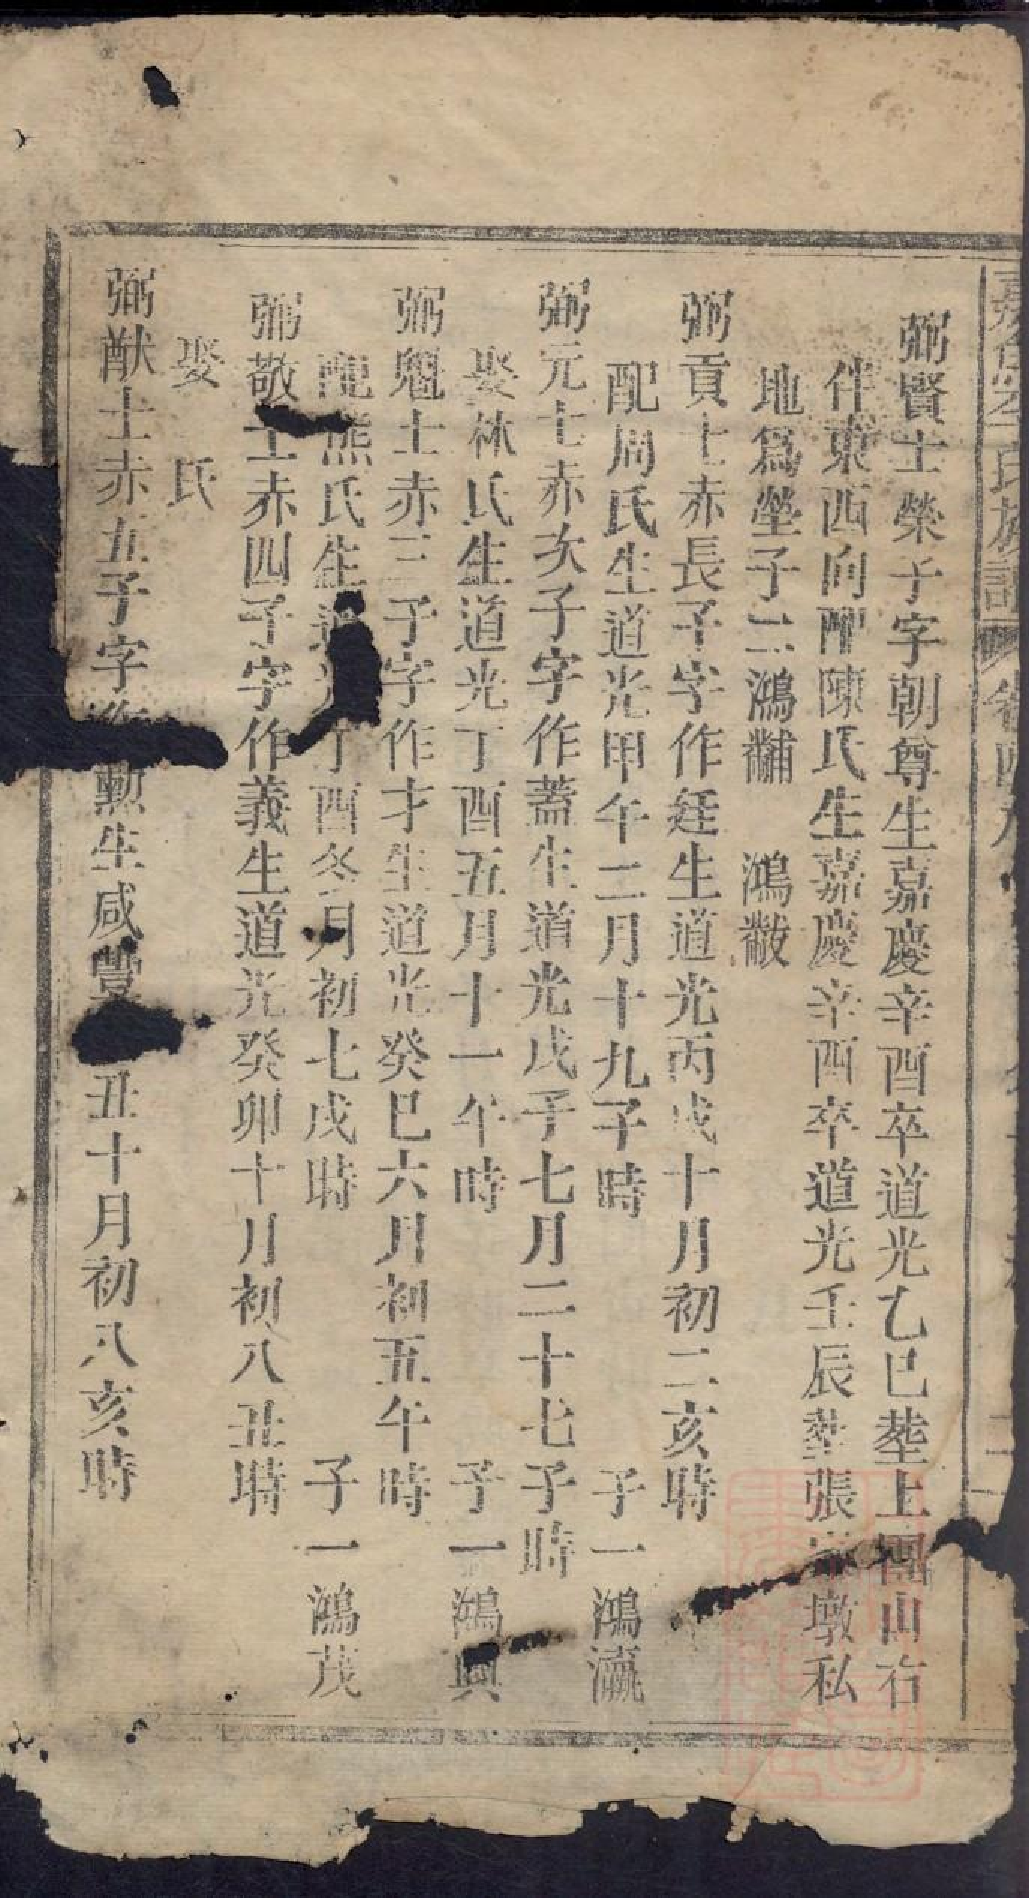 弼賢士榮子字朝尊生嘉慶辛酉卒道光乙巳塟上團山右
伴東西向配陳氏生嘉慶辛酉卒道光壬辰塟張墩私
地爲塋子二鴻黼 鴻黻
弼貢士赤長子字作廷生道光丙戌十月初二亥時
配周氏生道光甲午二月十九子時 子一鴻瀛
弼元士赤次子字作蓋生道光戊子七月二十七子時
娶林氏生道光丁酉五月十一午時 子一鴻興
弼魁士赤三子字作才生道光癸巳六月初五午時
配熊氏生道光丁酉冬月初七戌時 子一鴻茂
弼敬士赤四子字作義生道光癸卯十月初八丑時
娶 氏
弼猷士赤五子字作勳生咸豐丑十月初八亥時